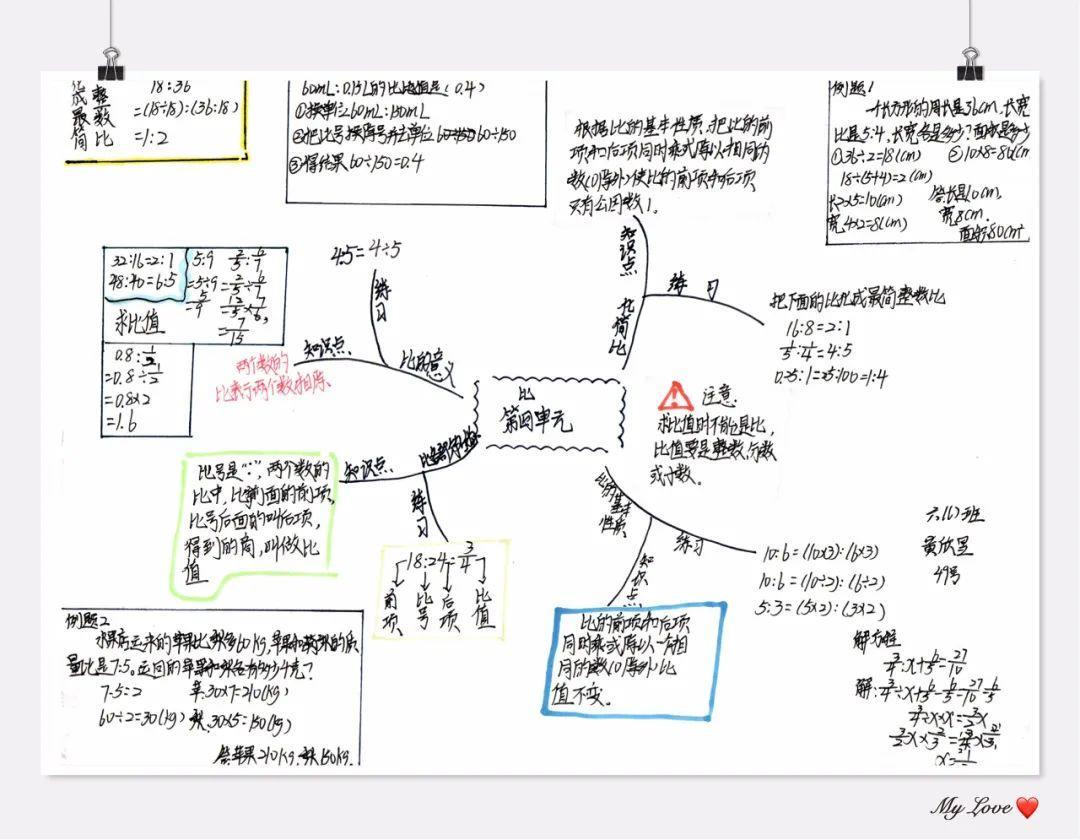 整
数
最
简
比
18:36
=(18÷18):(36÷18)
=1:2
60mL:0.15L的比比值是(0.4)
①换单位60mL:150mL
60÷150
③得结果60÷150=0.4
根据比的基本性质,把比的前
项和后项同时乘或除以相同的
数(0除外)使比的前项和后项
只有公因数1。
例题1
一个长方形的周长是36cm,长宽
比是5:4,长宽各是多少?面积是多少
①36÷2=18(cm)
18÷(5+4)=2(cm)
长2×5=10(cm)
宽4×2=8(cm)
答:长是10cm,
宽8cm.
32:16=2:1
48:40=6:5
求比值
5:9
=5÷9
=5/9
=7/15
0.8:1/2
=0.8÷1/2
=0.8×2
=1.6
4:5=4÷5
练习
知识点
比的意义
两个数的
比表示两个数相除.
比
第四单元
知识点
化简比
练习
把下面的比化成最简整数比
16:8=2:1
1/5:1/4=4:5
0.25:1=25:100=1:4
注意:
求比值时不能是比,
比值要是整数,分数
或小数。
知识点
练习
比号是“:”,两个数的
比中,比前面的前项,
比号后面的叫后项,
得到的商,叫做比
值
18:24=3/4
前项
比号
后项
比值
比的基本性质
练习
知识点
10:6=(10×3):(6×3)
10:6=(10÷2):(6÷2)
5:3=(5×2):(3×2)
比的前项和后项
同时乘或除以一个相
同的数(0除外)比
值不变。
六(6)班
49号
例题2
水果店运来的苹果比梨多60kg,苹果和梨的质
量比是7:5。运回的苹果和梨各有多少千克?
7-5=2
60÷2=30(kg)
苹:30×7=210(kg)
梨:30×5=150(kg)
答:苹果210kg.梨150kg.
解方程
My Love